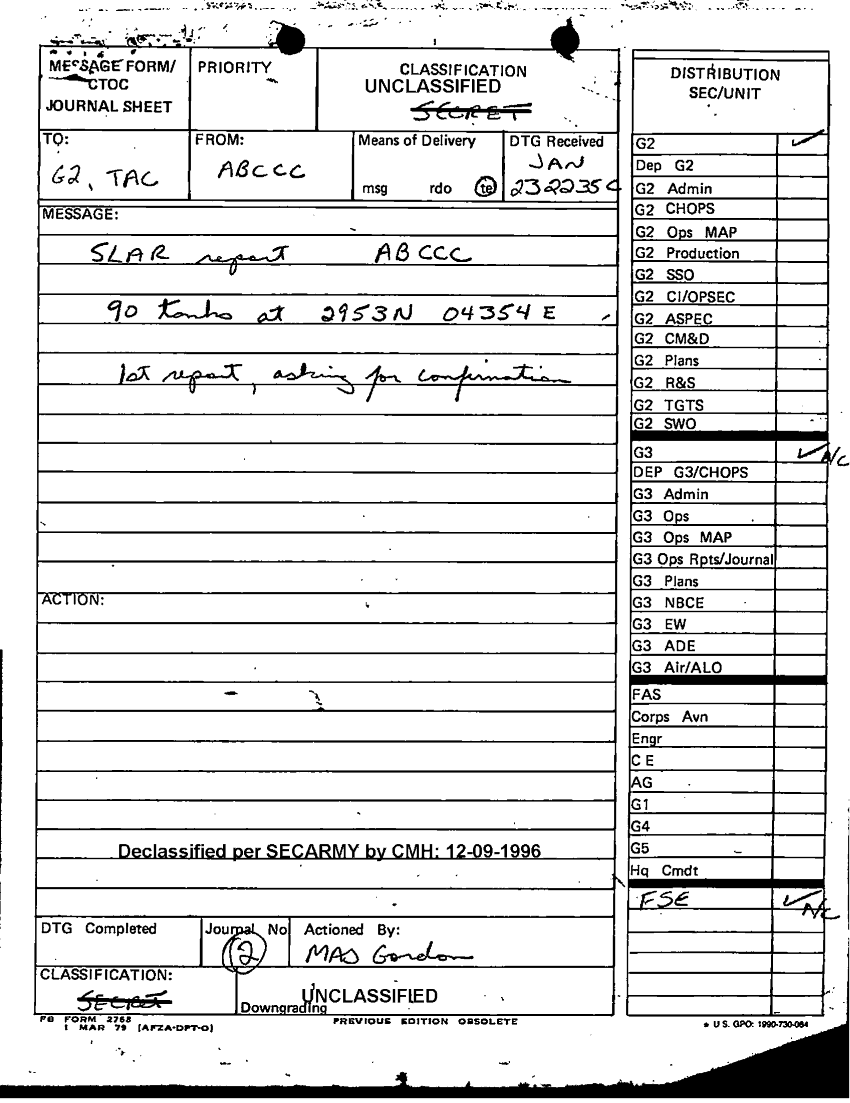 MESSAGE FORM/
CTOC
JOURNAL SHEET
PRIORITY
CLASSIFICATION
UNCLASSIFIED
SECRET
TO:
G2, TAC
FROM:
ABCCC
Means of Delivery
msg rdo te
DTG Received
JAN
232235C
MESSAGE:
SLAR report ABCCC
90 tanks at 2953N 04354E
1st report, asking for confirmation
ACTION:
Declassified per SECARMY by CMH: 12-09-1996
DTG Completed
Journal No
12
Actioned By:
MAJ Gordon
CLASSIFICATION:
SECRET
UNCLASSIFIED
Downgrading
FB FORM 2768
1 MAR 79 (AFZA-DPT-O)
PREVIOUS EDITION OBSOLETE
DISTRIBUTION
SEC/UNIT
G2 ✓
Dep G2
G2 Admin
G2 CHOPS
G2 Ops MAP
G2 Production
G2 SSO
G2 CI/OPSEC
G2 ASPEC
G2 CM&D
G2 Plans
G2 R&S
G2 TGTS
G2 SWO
G3 ✓ N/C
DEP G3/CHOPS
G3 Admin
G3 Ops
G3 Ops MAP
G3 Ops Rpts/Journal
G3 Plans
G3 NBCE
G3 EW
G3 ADE
G3 Air/ALO
FAS
Corps Avn
Engr
C E
AG
G1
G4
G5
Hq Cmdt
FSE ✓ N/C
U S. GPO: 1990-730-084